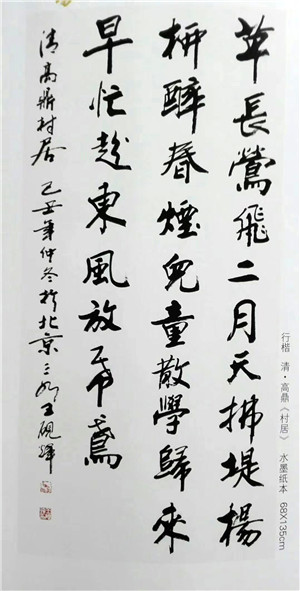 草長鶯飛二月天拂堤楊
柳醉春煙兒童散學歸來
早忙趁東風放帋鳶
清高鼎村居 己丑年仲冬於北京三如王硯輝
行楷 清·高鼎《村居》 水墨纸本 68X135cm